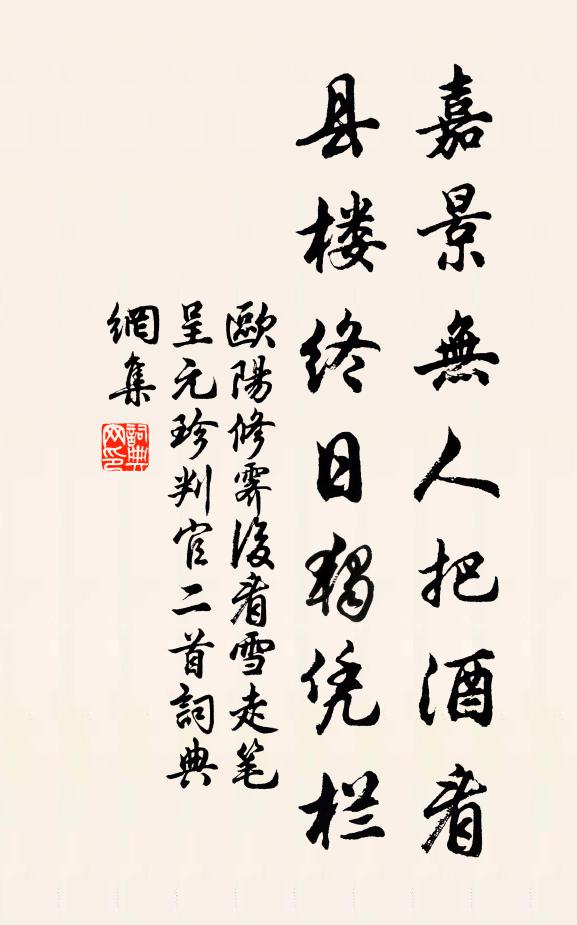 嘉景無人把酒看
县楼终日独凭栏
歐陽修霽後看雪走笔
呈元珍判官二首詞典
網集
詞典
网印